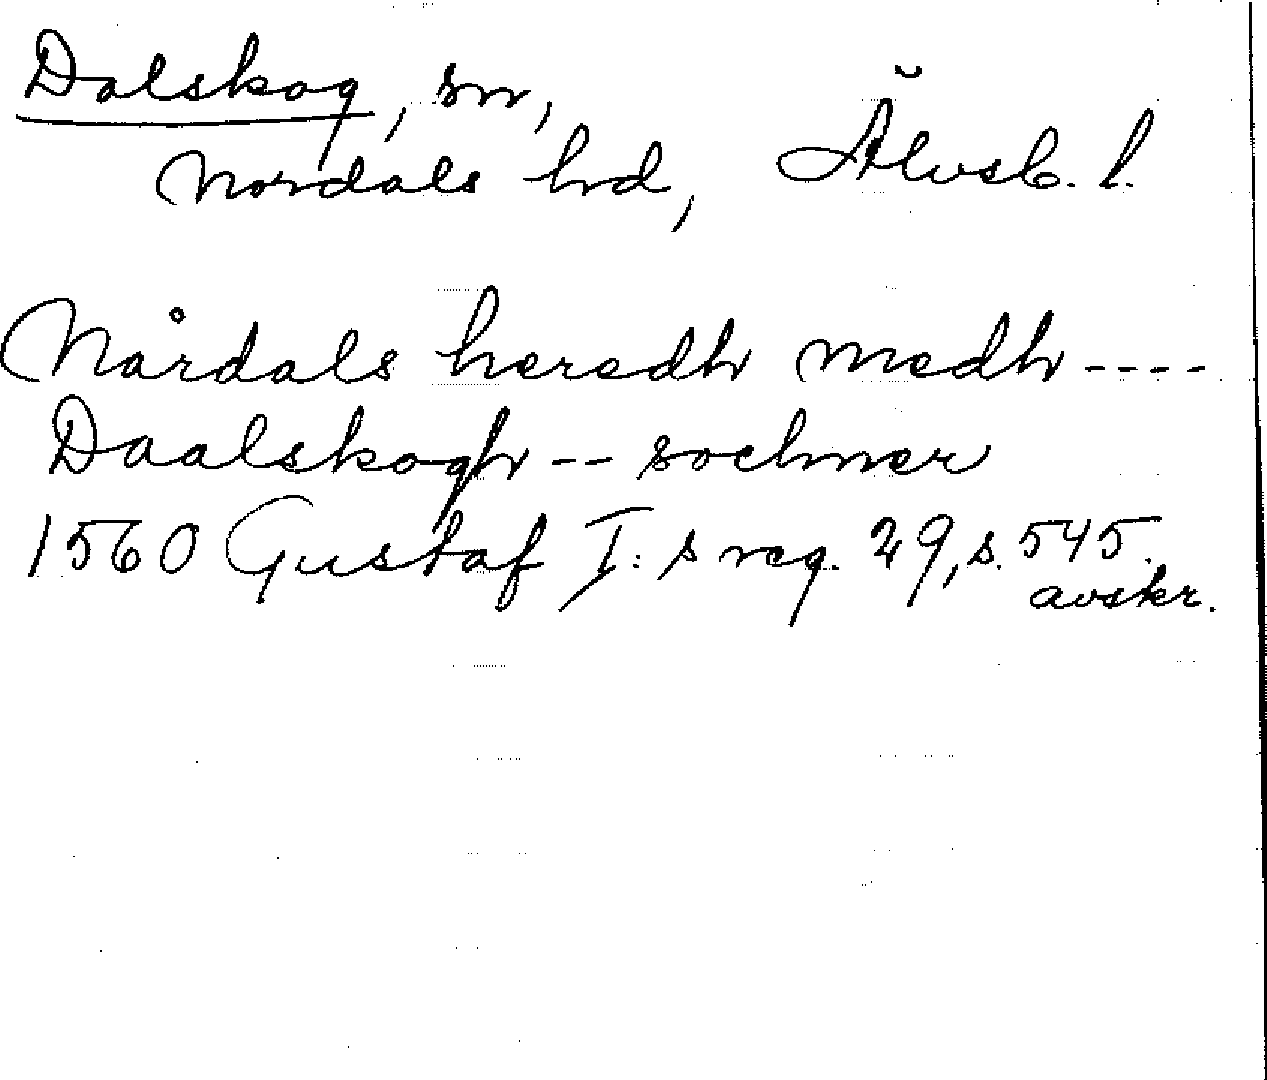 Dalskog, sn,
Nordals hd, Älvsb. l.
Nårdals heredh medh ----
Daalskogh -- sochner
1560 Gustaf I: s reg. 29, s. 545.
avskr.